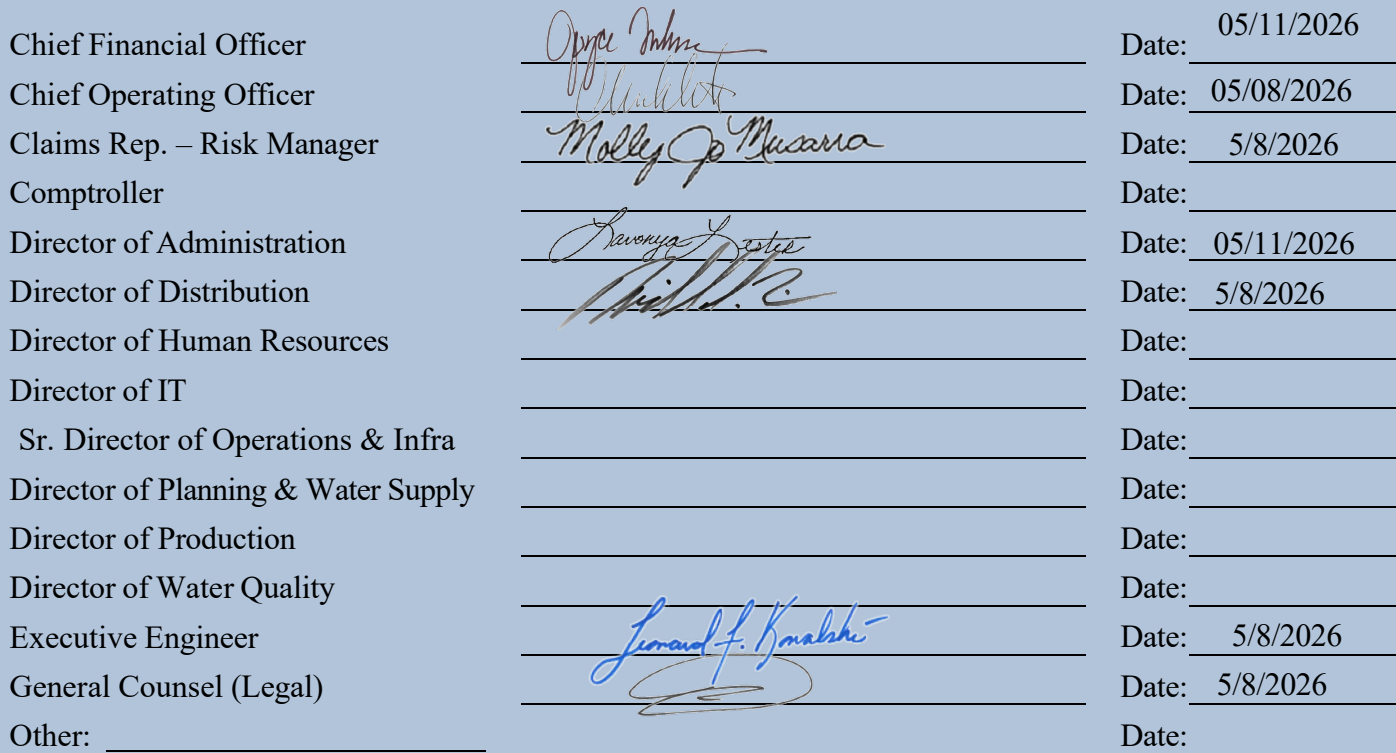 Chief Financial Officer Date: 05/11/2026
Chief Operating Officer Date: 05/08/2026
Claims Rep. – Risk Manager Molly Jo Musarra Date: 5/8/2026
Comptroller Date:
Director of Administration Lavonya Lester Date: 05/11/2026
Director of Distribution Date: 5/8/2026
Director of Human Resources Date:
Director of IT Date:
Sr. Director of Operations & Infra Date:
Director of Planning & Water Supply Date:
Director of Production Date:
Director of Water Quality Date:
Executive Engineer Leonard F. Kowalski Date: 5/8/2026
General Counsel (Legal) Date: 5/8/2026
Other: Date: